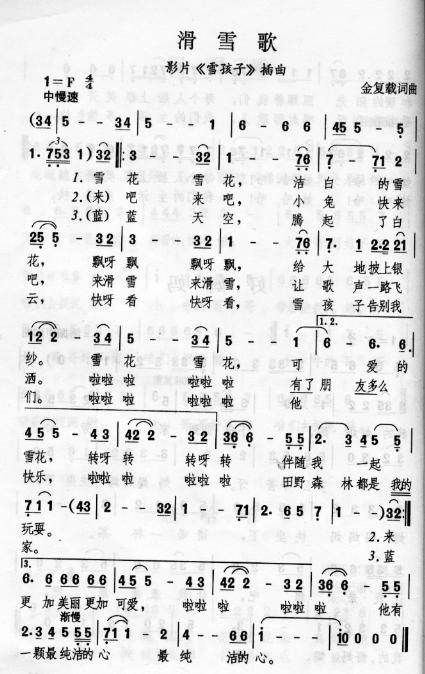 滑雪歌
影片《雪孩子》插曲
1=F 4/4
中慢速
金复载词曲
(34 | 5 - - 34 | 5 - - 1 | 6 - 6 6 | 45 5 - 5 |
3
1. 753 1) 32 |: 3 - - 32 | 1 - - 76 | 7 - 71 2 |
1.雪 花 雪 花, 洁 白 的雪
2.(来) 吧 来 吧, 小 兔 快来
3.(蓝) 蓝 天 空, 腾 起 了白
25 5 - 32 | 3 - - 32 | 1 - - 76 | 7. 1 2.2 21 |
花, 飘呀飘 飘呀飘, 给 大 地披上银
吧, 来滑雪 来滑雪, 让 歌 声一路飞
云, 快呀看 快呀看, 雪 孩 子告别我
1.2.
12 2 - 34 | 5 - - 34 | 5 - - 1 | 6 - 6. 6 |
纱。 雪花 雪花, 可 爱 的
洒。 啦啦 啦啦 有了 朋 友多么
们。 啦啦 啦啦 他
45 5 - 43 | 42 2 - 32 | 36 6 - 55 | 2. 3 4 5 5 |
雪花, 转呀 转 转呀 转 伴随 我 一起
快乐, 啦啦 啦 啦啦 啦 田野 森 林都是 我的
71 1 - (43 | 2 - - 32 | 1 - - 71 | 2. 6 5 7 | 1 - - ) 32 :|
玩耍。 2.来
家。 3.蓝
3.
6. 6 6 6 6 6 | 45 5 - 43 | 42 2 - 32 | 36 6 - 55 |
更 加美丽更加 可爱, 啦啦 啦 啦啦 啦 他有
渐慢
2. 3 4 5 55 | 71 1 - 2 | 4 - - 66 | i - - - | i0 0 0 0 ||
一颗最纯洁的心 最 纯 洁的 心。